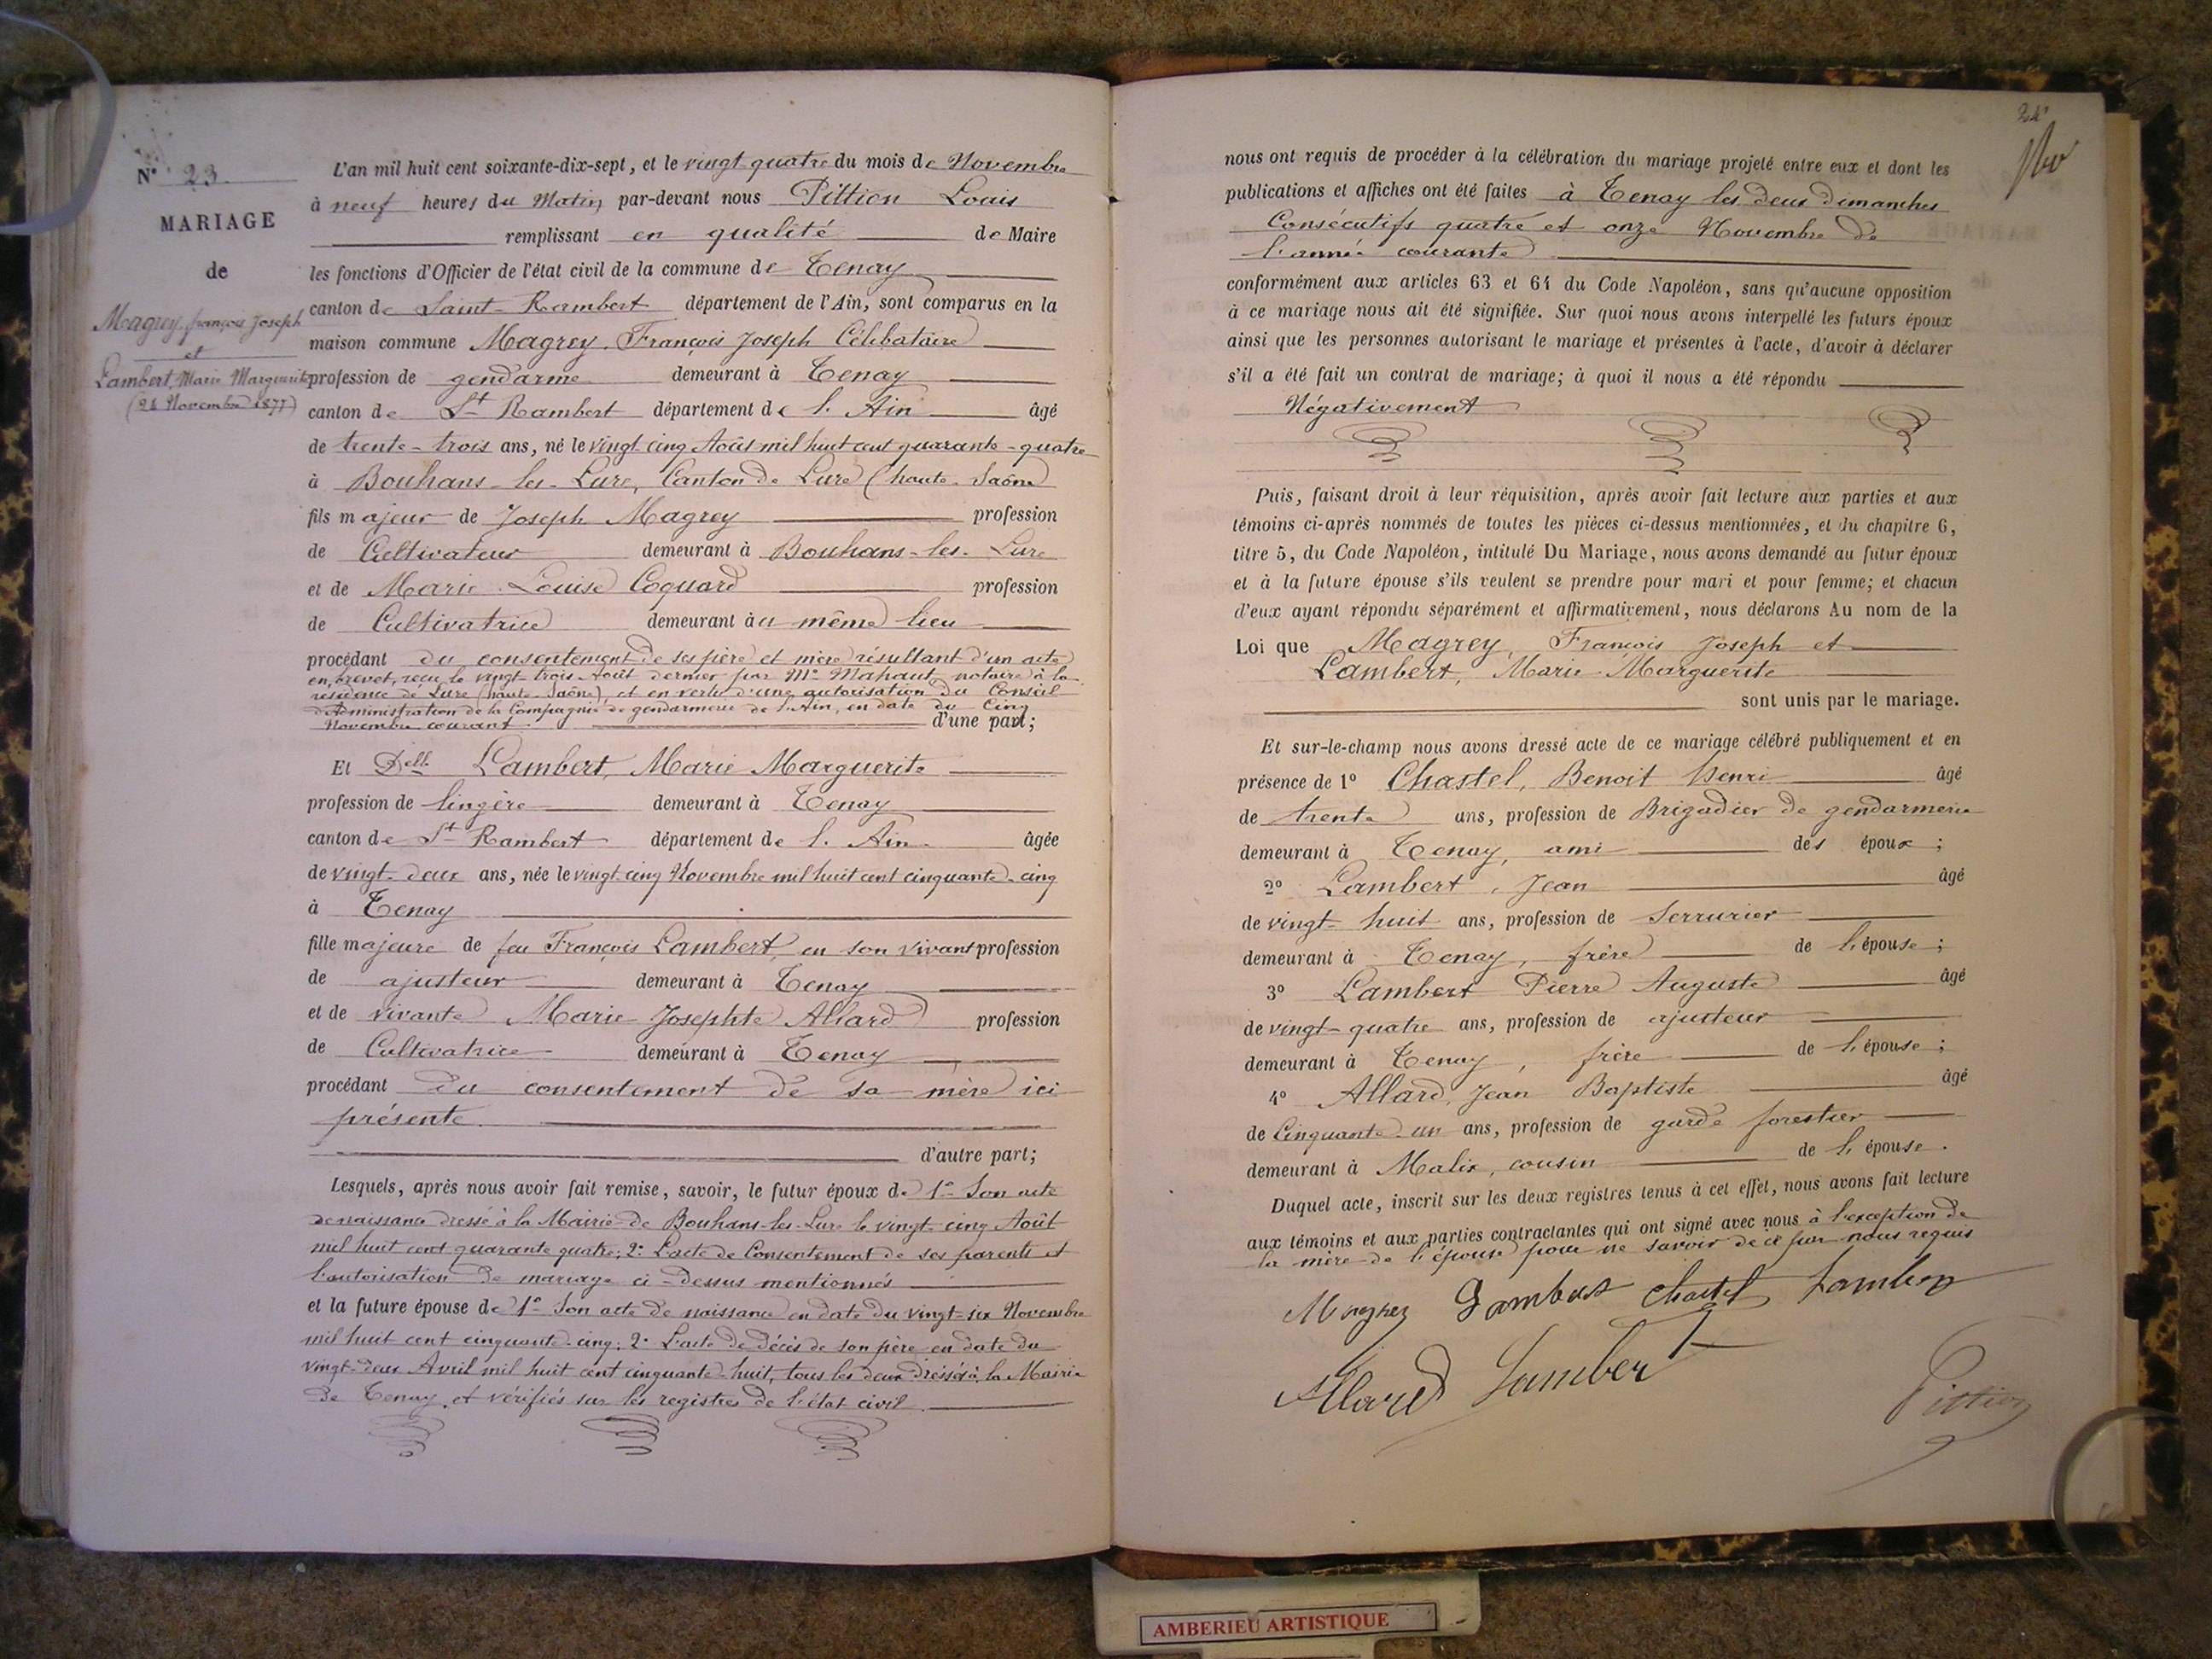 N° 23.
MARIAGE
de
Magrey, françois Joseph
et
Lambert, Marie Marguerite
(24 Novembre 1877)
L'an mil huit cent soixante-dix-sept, et le vingt quatre du mois de Novembre
à neuf heures du Matin par-devant nous Pittion Louis
remplissant en qualité de Maire
les fonctions d'Officier de l'état civil de la commune de Tenay
canton de Saint-Rambert département de l'Ain, sont comparus en la
maison commune Magrey, François Joseph Célibataire
profession de gendarme demeurant à Tenay
canton de St Rambert département de l'Ain âgé
de trente-trois ans, né le vingt cinq Août mil huit cent quarante-quatre
à Bouhans-les-Lure, Canton de Lure (haute-Saône
fils majeur de Joseph Magrey profession
de Cultivateur demeurant à Bouhans-les-Lure
et de Marie Louise Coquard profession
de Cultivatrice demeurant au même lieu
procédant du consentement de ses père et mère résultant d'un acte
en brevet, reçu le vingt-trois Août dernier par Me Mahaut, notaire à la
résidence de Lure (haute-Saône), et en vertu d'une autorisation du Conseil
d'Administration de la Compagnie de gendarmerie de l'Ain, en date du Cinq
Novembre courant d'une part;
Et Delle Lambert, Marie Marguerite
profession de lingère demeurant à Tenay
canton de St Rambert département de l'Ain âgée
de vingt-deux ans, née le vingt-cinq Novembre mil huit cent cinquante-cinq
à Tenay
fille majeure de feu François Lambert, en son vivant profession
de ajusteur demeurant à Tenay
et de vivante Marie Josephte Allard profession
de Cultivatrice demeurant à Tenay
procédant du consentement de sa mère ici
présente.
d'autre part;
Lesquels, après nous avoir fait remise, savoir, le futur époux de 1° Son acte
de naissance dressé à la Mairie de Bouhans-les-Lure le vingt-cinq Août
mil huit cent quarante quatre; 2° L'acte de Consentement de ses parents et
l'autorisation de mariage ci-dessus mentionnés
et la future épouse de 1° Son acte de naissance en date du vingt-six Novembre
mil huit cent cinquante-cinq; 2° L'acte de décès de son père en date du
vingt-deux Avril mil huit cent cinquante-huit, tous les deux dressés à la Mairie
de Tenay, et vérifiés sur les registres de l'état civil.
nous ont requis de procéder à la célébration du mariage projeté entre eux et dont les
publications et affiches ont été faites à Tenay les deux dimanches
Consécutifs quatre et onze Novembre de
l'année courante
conformément aux articles 63 et 64 du Code Napoléon, sans qu'aucune opposition
à ce mariage nous ait été signifiée. Sur quoi nous avons interpellé les futurs époux
ainsi que les personnes autorisant le mariage et présentes à l'acte, d'avoir à déclarer
s'il a été fait un contrat de mariage; à quoi il nous a été répondu
Négativement
Puis, faisant droit à leur réquisition, après avoir fait lecture aux parties et aux
témoins ci-après nommés de toutes les pièces ci-dessus mentionnées, et du chapitre 6,
titre 5, du Code Napoléon, intitulé Du Mariage, nous avons demandé au futur époux
et à la future épouse s'ils veulent se prendre pour mari et pour femme; et chacun
d'eux ayant répondu séparément et affirmativement, nous déclarons Au nom de la
Loi que Magrey, François Joseph et
Lambert, Marie Marguerite
sont unis par le mariage.
Et sur-le-champ nous avons dressé acte de ce mariage célébré publiquement et en
présence de 1° Chastel, Benoit Henri âgé
de trente ans, profession de Brigadier de gendarmerie
demeurant à Tenay, ami des époux;
2° Lambert, Jean âgé
de vingt-huit ans, profession de Serrurier
demeurant à Tenay, frère de l'épouse;
3° Lambert Pierre Auguste âgé
de vingt-quatre ans, profession de ajusteur
demeurant à Tenay, frère de l'épouse;
4° Allard, Jean Baptiste âgé
de Cinquante-un ans, profession de garde forestier
demeurant à Malix, cousin de l'épouse.
Duquel acte, inscrit sur les deux registres tenus à cet effet, nous avons fait lecture
aux témoins et aux parties contractantes qui ont signé avec nous à l'exception de
la mère de l'épouse pour ne savoir de ce par nous requis
Magrey Lambert Chastel Lambert
Allard Lambert
Pittion
AMBERIEU ARTISTIQUE